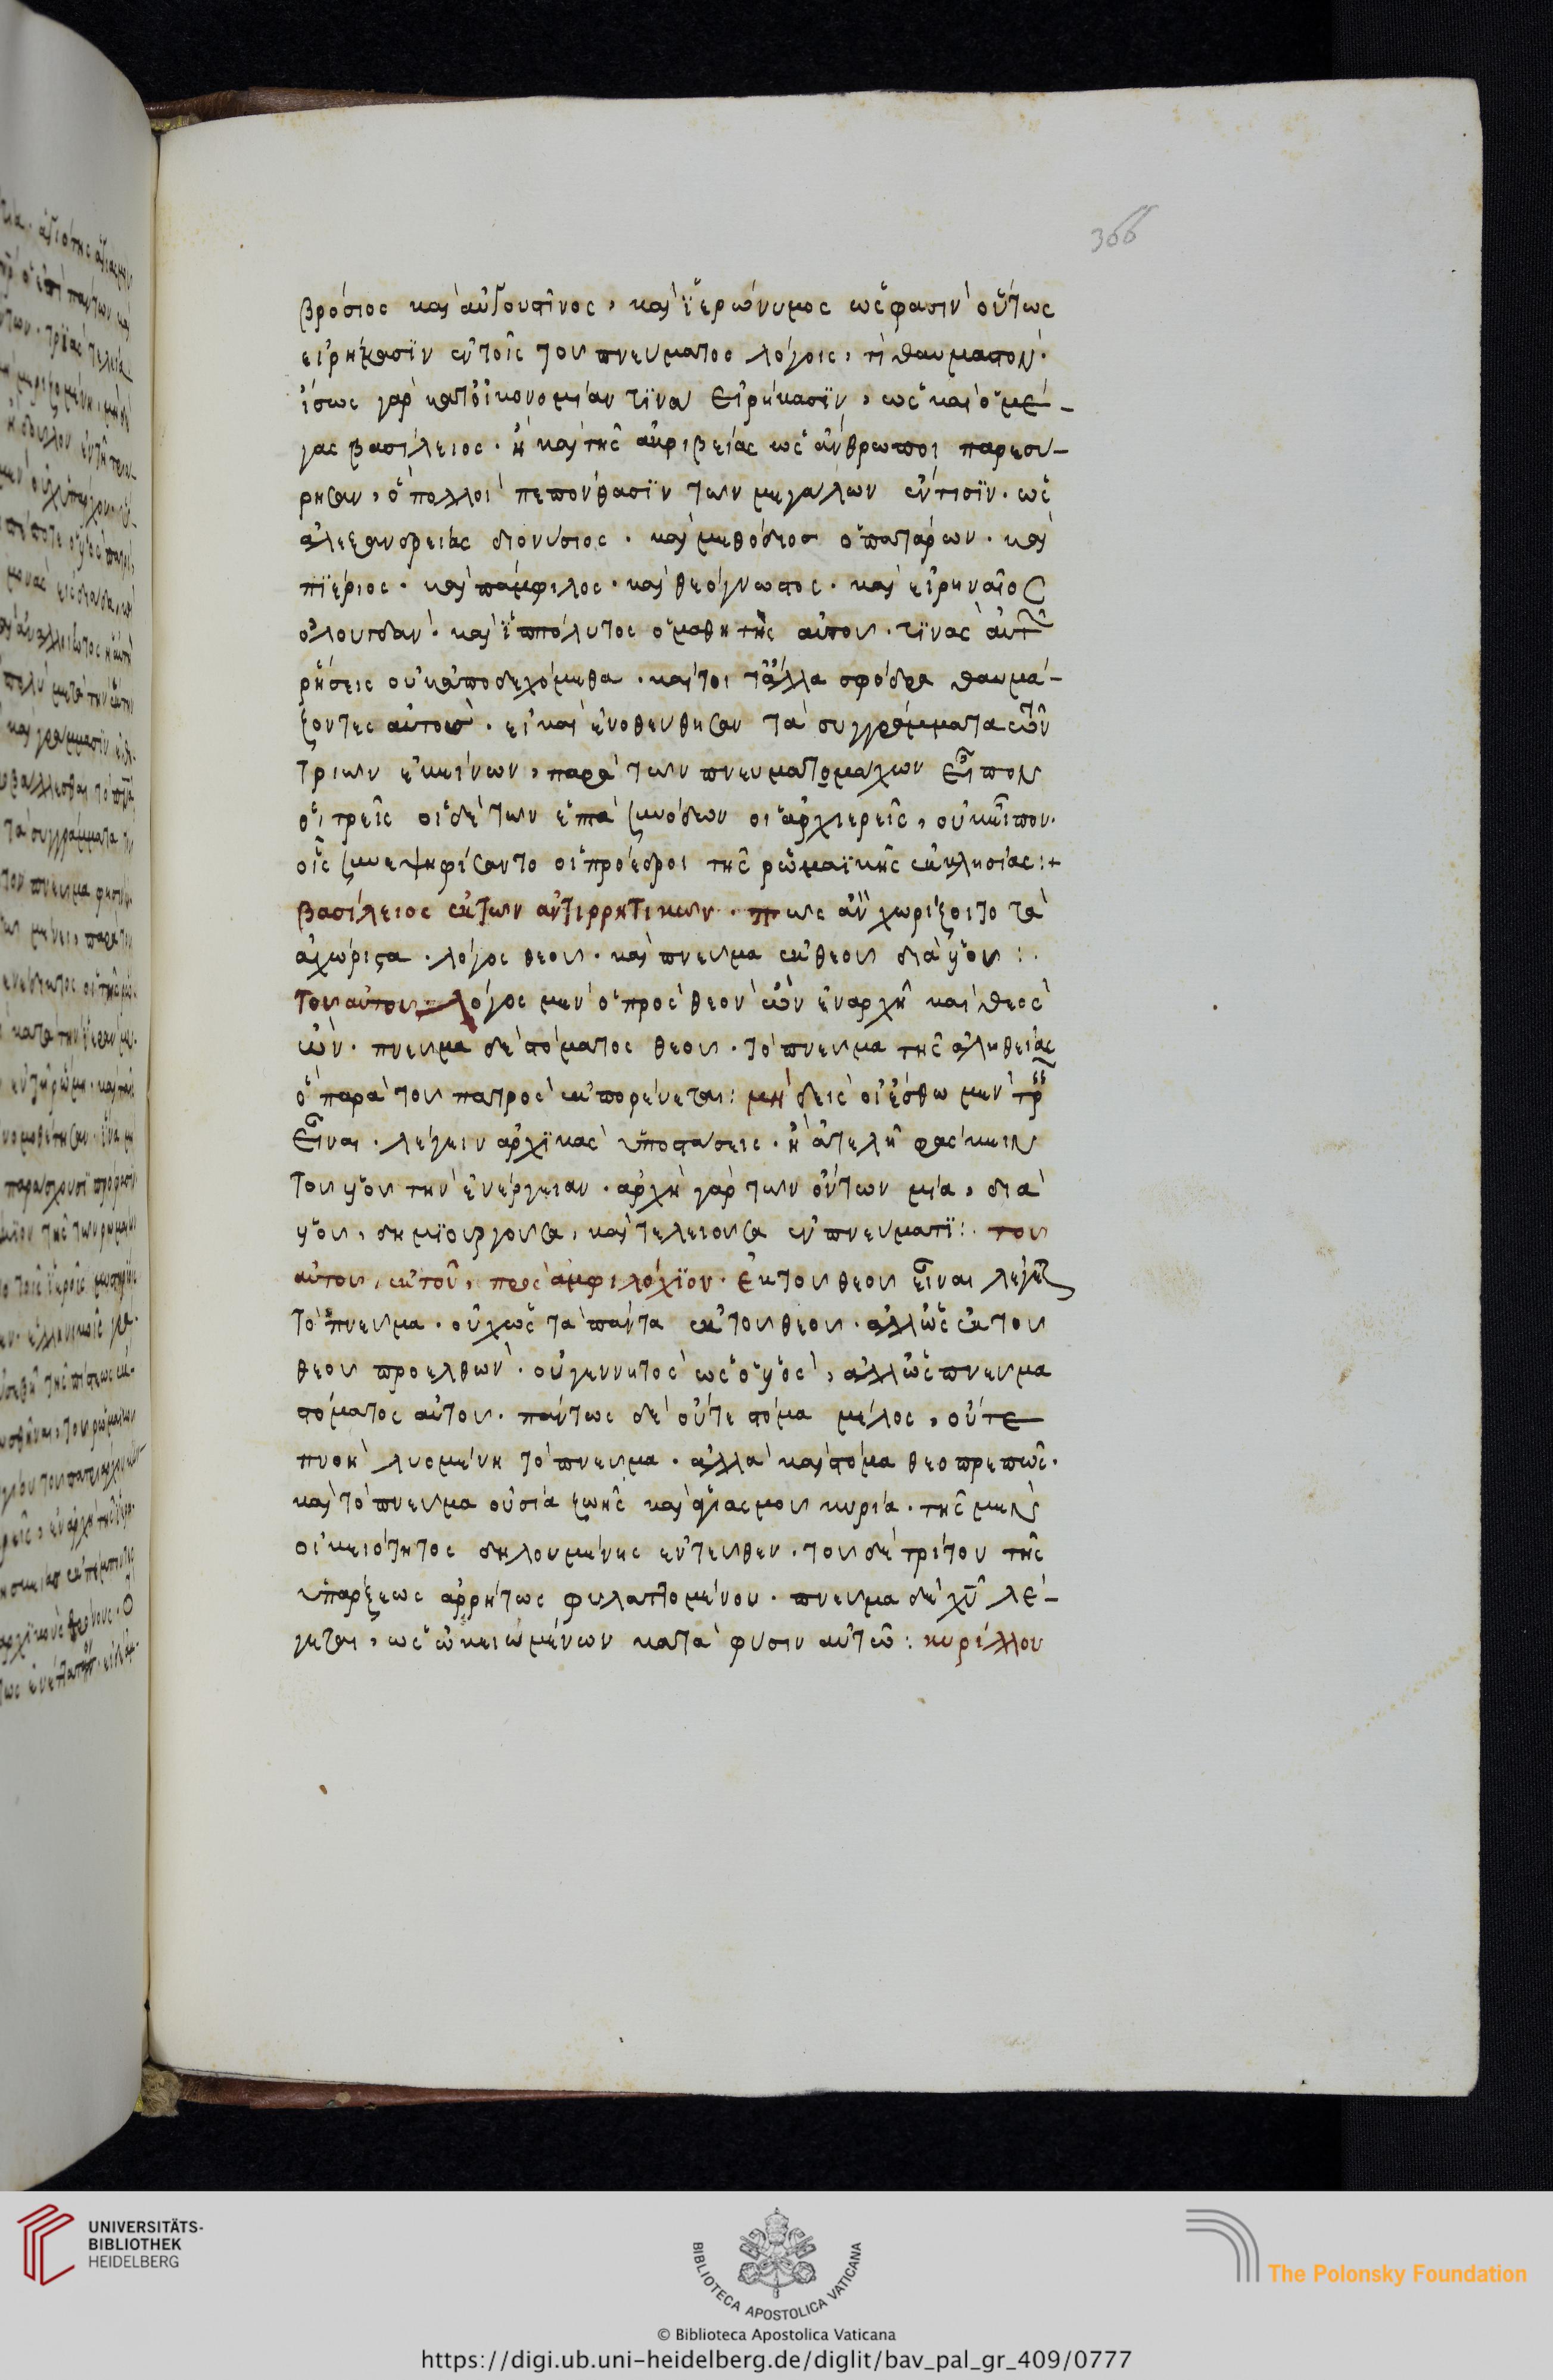 366
βρόσιος καὶ αὐγουστῖνος, καὶ ἱερώνυμος ὡς φασὶν οὕτως
εἰρήκασϊν ἐν τοῖς τοῦ πνεύματος λόγοις, τί θαυμαστόν.
ἴσως γὰρ κατ οἰκονομίαν τϊνὰ εἰρήκασϊν, ὡς καὶ ὁ μέ-
γας βασίλειος. ἢ καὶ τῆς ἀκριβείας ὡς ἄνθρωποι παρεσύ-
ρησαν, ὃ πολλοὶ πεπόνθασϊν τῶν μεγάλων ἔν τισϊν. ὡς
ἀλεξανδρείας διονύσιος. καὶ μεθόδιος ὁ πατάρων. καὶ
πϊέριος. καὶ πάμφιλος. καὶ θεόγνωστος. καὶ εἰρηναῖος
ὁ λουγδάν. καὶ ἱππόλυτος ὁ μαθητὴς αὐτοῦ. τϊνὰς αὐτῶν
ῥήσεις οὐκ ἀποδεχόμεθα. καίτοι τἄλλα σφόδρα θαυμά-
ζοντες αὐτούς. εἰ καὶ ἐνοθεύθησαν τὰ συγγράμματα τῶν
τριῶν ἐκείνων, παρὰ τῶν πνευματομάχων εἶπον
οἱ τρεῖς οἱ δὲ τῶν ἑπτὰ συνόδων οἱ ἀρχιερεῖς, οὐκ εἶπον.
οἷς συνεψηφίσαντο οἱ πρόεδροι τῆς ῥωμαϊκῆς ἐκκλησίας:+
βασίλειος ἐκ τῶν ἀντιρρητικῶν. πῶς ἂν χωρίζοιτο τὰ
ἀχώριστα. λόγος θεοῦ. καὶ πνεῦμα ἐκ θεοῦ διὰ υἱοῦ:.
τοῦ αὐτοῦ λόγος μὲν ὁ πρὸς θεὸν ὢν ἐν ἀρχῇ καὶ θεὸς
ὤν. πνεῦμα δὲ στόματος θεοῦ. τὸ πνεῦμα τῆς ἀληθείας
ὃ παρὰ τοῦ πατρὸς ἐκπορεύεται: μὴ δεὶς οἰέσθω μὲν τρεῖς
εἶναι. λέγειν ἀρχϊκὰς ὑποστάσεις. ἢ ἀτελῆ φάσκειν
τοῦ υἱοῦ τὴν ἐνέργειαν. ἀρχὴ γὰρ τῶν ὄντων μία, διὰ
υἱοῦ, δημϊουργοῦσα, καὶ τελειοῦσα ἐν πνεύματϊ:. τοῦ
αὐτοῦ, ἐκ τοῦ, πρὸς ἀμφιλόχϊον. Ἐκ τοῦ θεοῦ εἶναι λέγεται
τὸ πνεῦμα. οὐχ ὡς τὰ πάντα ἐκ τοῦ θεοῦ. ἀλλ ὡς ἐκ τοῦ
θεοῦ προελθών. οὐ γεννητὸς ὡς ὁ υἱός, ἀλλ ὡς πνεῦμα
στόματος αὐτοῦ. πάντως δὲ οὔτε στόμα μέλος, οὔτε
πνοὴ λυομένη τὸ πνεῦμα. ἀλλὰ καὶ στόμα θεοπρεπῶς.
καὶ τὸ πνεῦμα οὐσία ζωῆς καὶ ἁγιασμοῦ κυρία. τῆς μὲν
οἰκειότητος δηλουμένης ἐντεῦθεν. τοῦ δὲ τρίτου τῆς
ὑπάρξεως ἀρρήτως φυλαττομένου. πνεῦμα δὲ χῦ λέ-
γεται, ὡς ὠκειωμένων κατὰ φύσιν αὐτῶ: κυρίλλου
UNIVERSITÄTS-
BIBLIOTHEK
HEIDELBERG
BIBLIOTECA APOSTOLICA VATICANA
The Polonsky Foundation
© Biblioteca Apostolica Vaticana
https://digi.ub.uni-heidelberg.de/diglit/bav_pal_gr_409/0777